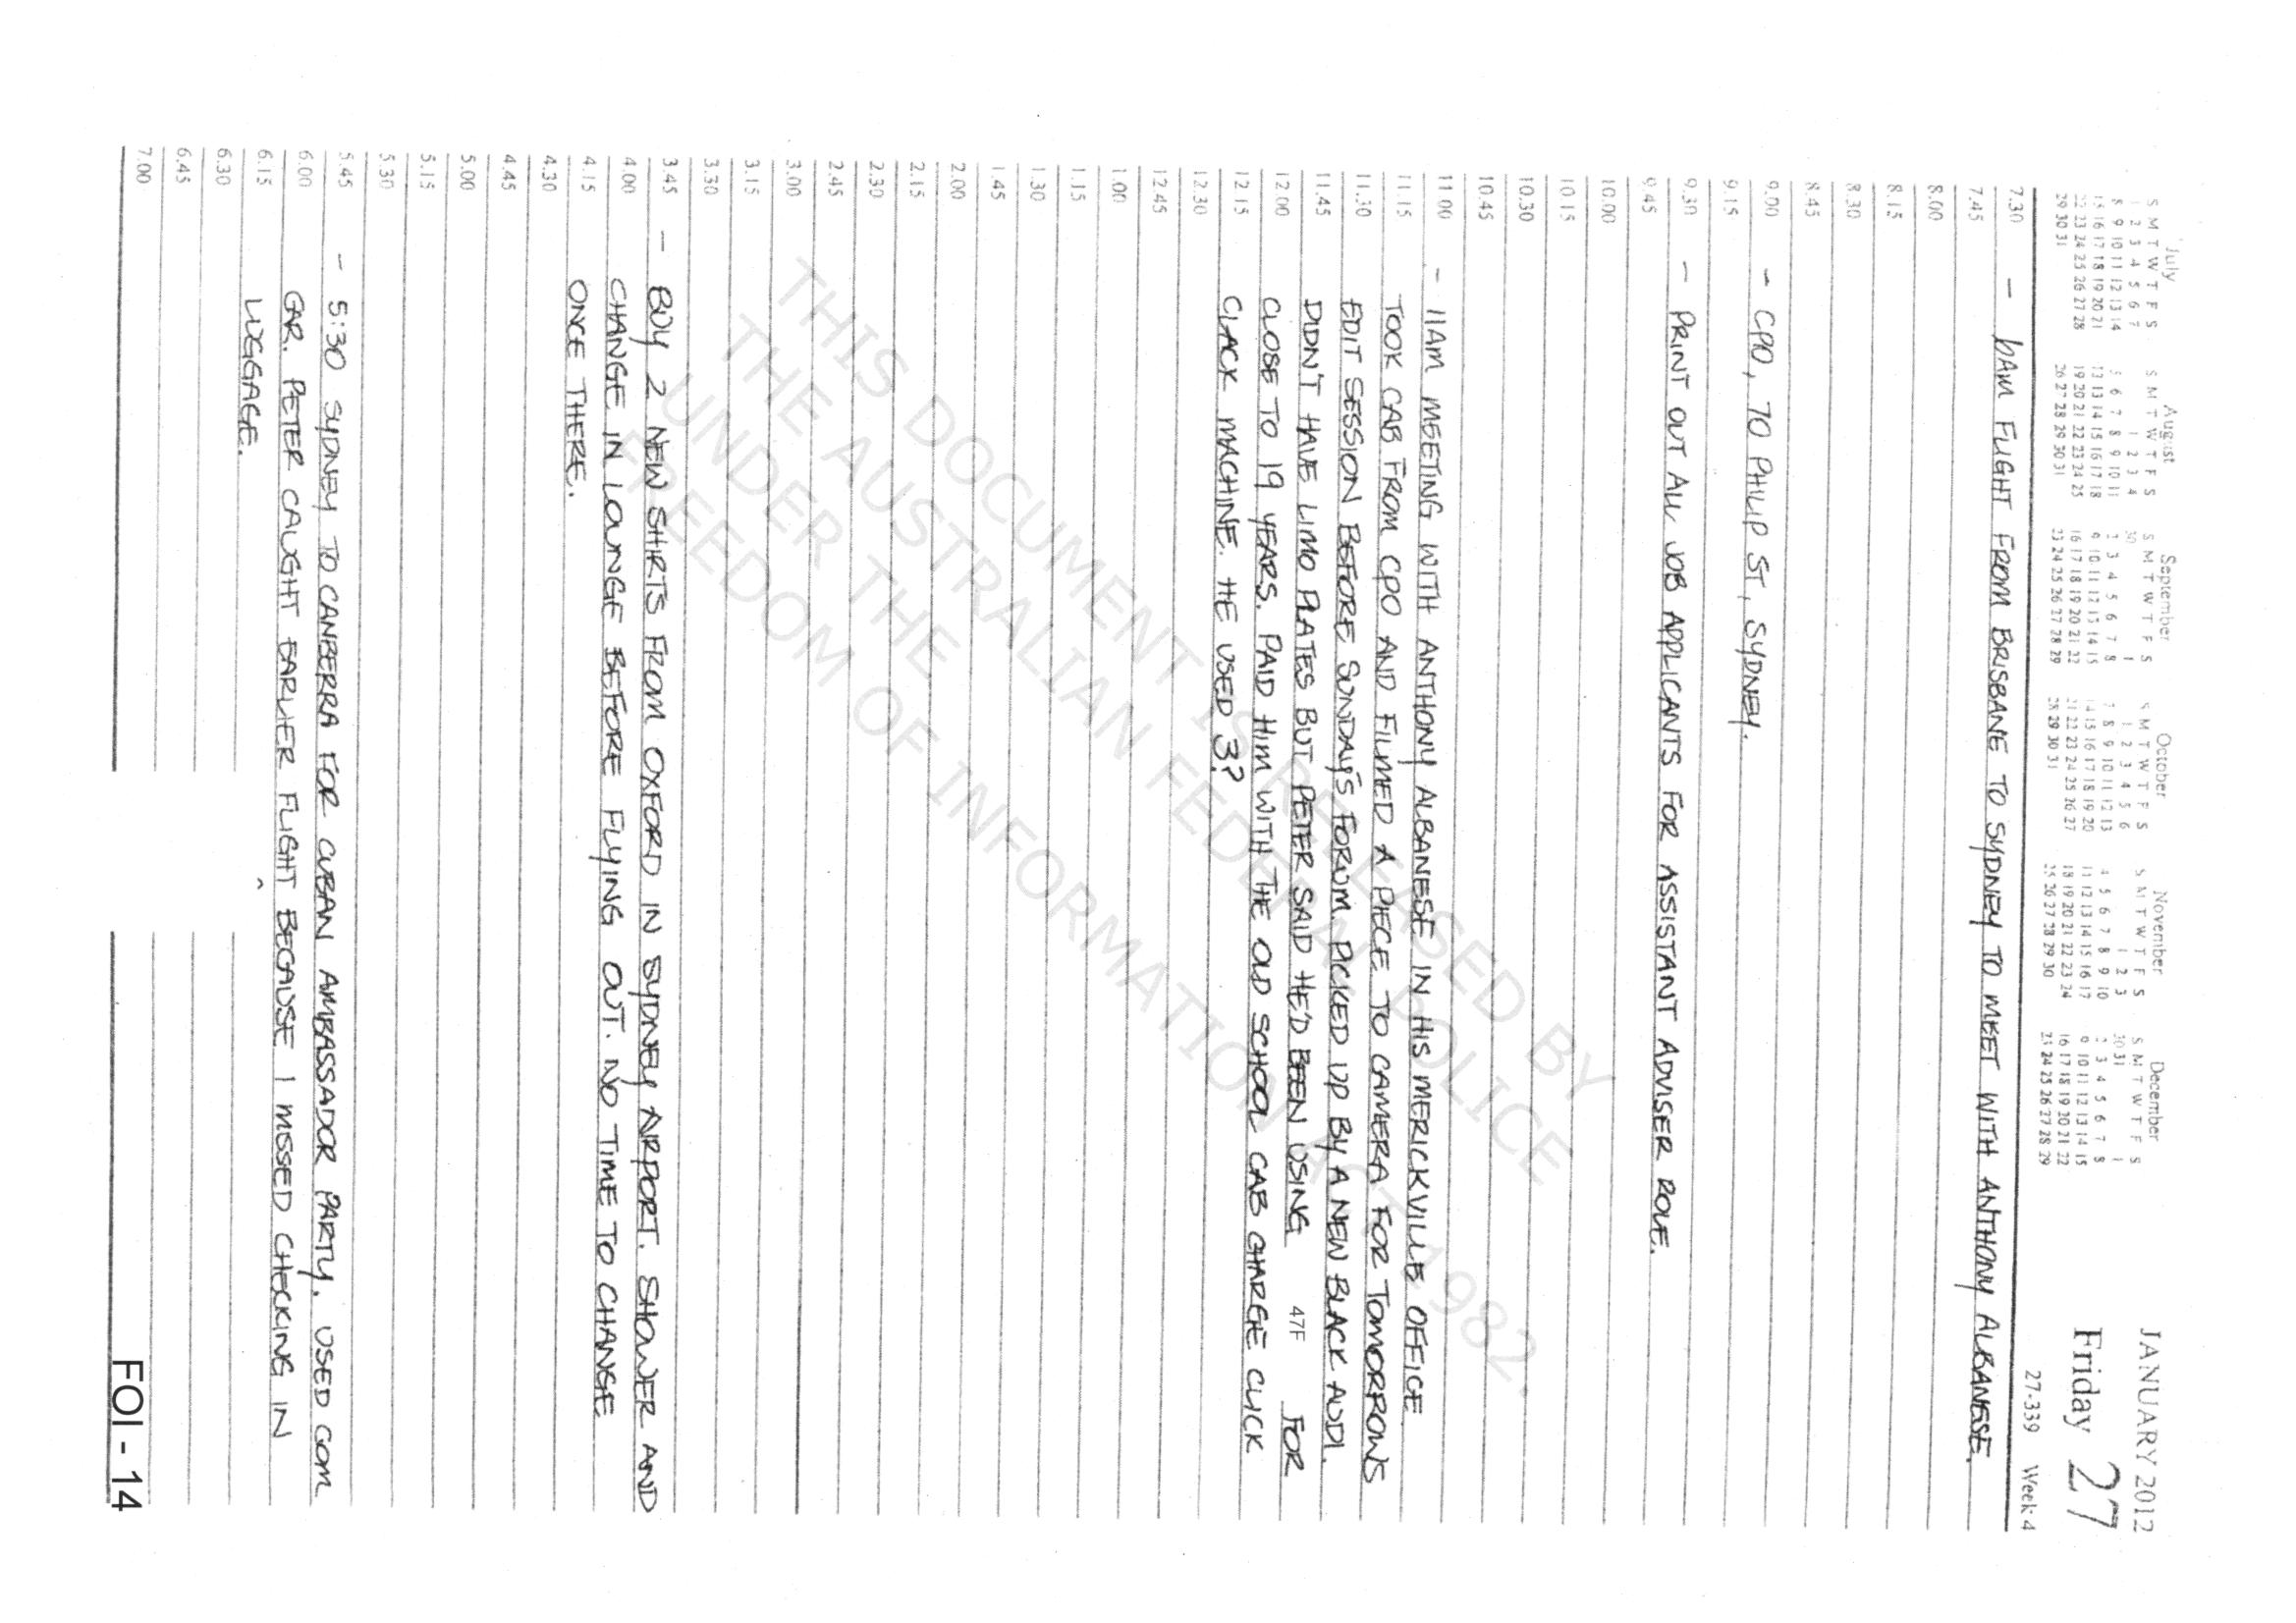 JANUARY 2012
Friday 27
27-339 Week 4
July
S M T W T F S
1 2 3 4 5 6 7
8 9 10 11 12 13 14
15 16 17 18 19 20 21
22 23 24 25 26 27 28
29 30 31
August
S M T W T F S
1 2 3 4
5 6 7 8 9 10 11
12 13 14 15 16 17 18
19 20 21 22 23 24 25
26 27 28 29 30 31
September
S M T W T F S
30 1
2 3 4 5 6 7 8
9 10 11 12 13 14 15
16 17 18 19 20 21 22
23 24 25 26 27 28 29
October
S M T W T F S
1 2 3 4 5 6
7 8 9 10 11 12 13
14 15 16 17 18 19 20
21 22 23 24 25 26 27
28 29 30 31
November
S M T W T F S
1 2 3
4 5 6 7 8 9 10
11 12 13 14 15 16 17
18 19 20 21 22 23 24
25 26 27 28 29 30
December
S M T W T F S
30 31 1
2 3 4 5 6 7 8
9 10 11 12 13 14 15
16 17 18 19 20 21 22
23 24 25 26 27 28 29
7.30 - 6AM FLIGHT FROM BRISBANE TO SYDNEY TO MEET WITH ANTHONY ALBANESE.
7.45
8.00
8.15
8.30
8.45
9.00 - CPO, 70 PHILIP ST, SYDNEY.
9.15
9.30 - PRINT OUT ALL JOB APPLICANTS FOR ASSISTANT ADVISER ROLE.
9.45
10.00
10.15
10.30
10.45
11.00 - 11AM MEETING WITH ANTHONY ALBANESE IN HIS MERICKVILLE OFFICE
11.15 TOOK CAB FROM CPO AND FILMED A PIECE TO CAMERA FOR TOMORROWS
11.30 EDIT SESSION BEFORE SUNDAY'S FORUM. PICKED UP BY A NEW BLACK AUDI.
11.45 DIDN'T HAVE LIMO PLATES BUT PETER SAID HE'D BEEN USING 47F FOR
12.00 CLOSE TO 19 YEARS. PAID HIM WITH THE OLD SCHOOL CAB CHARGE CLICK
12.15 CLACK MACHINE. HE USED 3?
12.30
12.45
1.00
1.15
1.30
1.45
2.00
2.15
2.30
2.45
3.00
3.15
3.30
3.45 - BUY 2 NEW SHIRTS FROM OXFORD IN SYDNEY AIRPORT. SHOWER AND
4.00 CHANGE IN LOUNGE BEFORE FLYING OUT. NO TIME TO CHANGE
4.15 ONCE THERE.
4.30
4.45
5.00
5.15
5.30
5.45 - 5:30 SYDNEY TO CANBERRA FOR CUBAN AMBASSADOR PARTY. USED COM
6.00 CAR. PETER CAUGHT EARLIER FLIGHT BECAUSE I MISSED CHECKING IN
6.15 LUGGAGE.
6.30
6.45
7.00
THIS DOCUMENT IS RELEASED BY
THE AUSTRALIAN FEDERAL POLICE
UNDER THE
FREEDOM OF INFORMATION ACT 1982.
FOI - 14